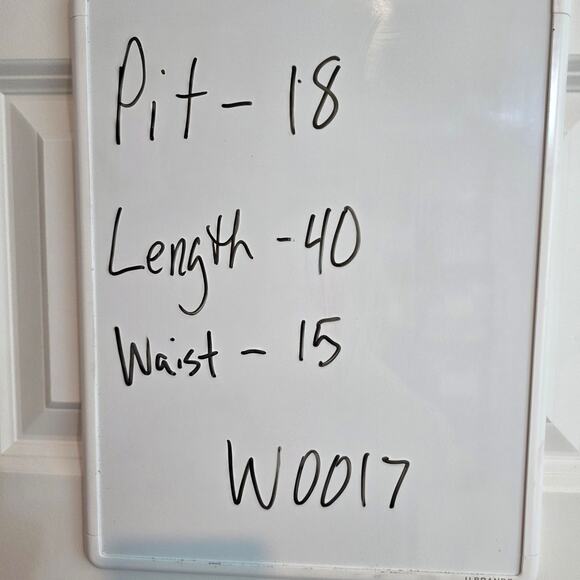 Pit - 18
Length - 40
Waist - 15
W0017